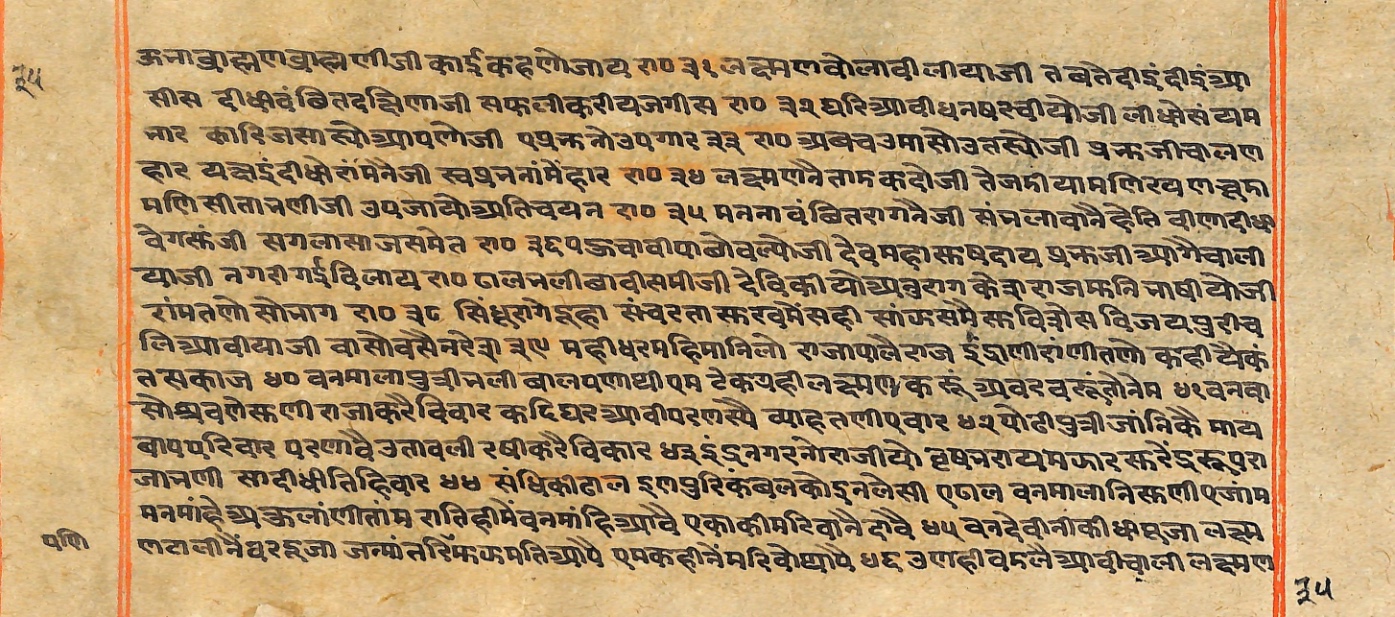 ३५
ऊना ब्राह्मण ब्राह्मणी जी कांई कहणो जाय रा० ३१ लक्ष्मण बोलावी लीया जी तब ते दीइं दीइं आ
सीस दीधी वंछित दक्षिणा जी सफली करीय जगीस रा० ३२ घरि आवी धन षरचीयो जी लीधो संयम
भार कारिज सास्यो आपणो जी ए प्रभु नो उपगार ३३ रा० अब चउमासो उतस्यो जी प्रभु जी चालण
हार यक्षइं दीधो रांमनै जी स्वप्रभ नांमें हार रा० ३४ लक्ष्मणनै ताम कदो जी ते जमीया मणिरयण चूमा
मणि सीता भणी जी उपजायो अति चयन रा० ३५ मनना वंछित रागनै जी संभलावानै हेति वीणा दीधी
वेगसुं जी सगला साज समेत रा० ३६ पहुचावी पाछो वल्यो जी देव महा सुषदाय प्रभु जी आगै चाली
या जी नगरी गई विलाय रा० ढाल भली बावीसमी जी देवि कीयो अनुराग केशराज मुनि भाषीयो जी
रांमतणो सोभाग रा० ३८ सिंधूरागे दूहा संचरता सुरवमें सही सांझ समै सुविशेस विजयपुरी च
लि आवीया जी वासो वसै नरेश ३९ महीधर महिमानिलो राजा पालै राज इंद्राणी रांणी तणो कही यैकं
त सकाज ४० वनमाला पुत्री भली बालपणा थी एम टेक ग्रही लक्ष्मण क रूं अवर वरूं तो नेम ४१ वनवा
सो श्रवणे सुणी राजा करै विचार कदि घर आवी परणस्यै व्याह तणी ए वार ४२ पोढी पुत्री जांनिकै माय
बाप परिवार परणावै उतावली रषी करै विकार ४३ इंद्रनगरनो राजीयो वृषभराय मझार सुरेंद्ररूप रा
जा भणी सा दीधी तिहिवार ४४ संधि की ढाल इण पुरि कंबल कोइ न लेसी ए ढाल वनमाला निसुणी ए जांम
मनमांहे अकुलांणी तांम राति हीमें वनमांहि आवै एकाकी मरिवानै दावै ४५ वनदेवीनी कीधी पूजा लक्ष्म
पणि
ण टाली नें वर दूजा जन्मांतरि मुझ मति आपै एम कही नें मरिवो थापै ४६ उणही वमलै आवी चाली लक्ष्मण
३५